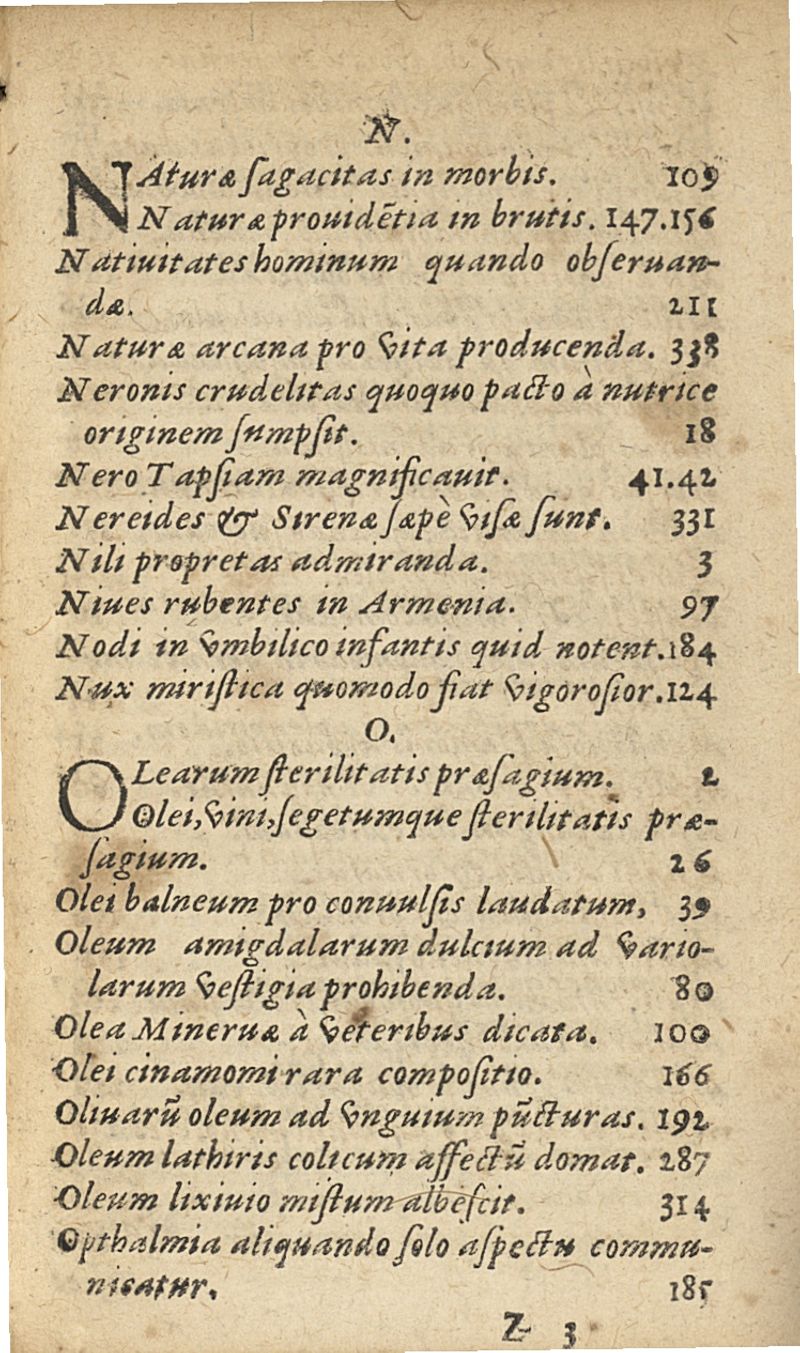 N.
NAturæ ſagacitas in morbis. 109
Naturæ prouidẽtia in brutis. 147.156
Natiuitates hominum quando obſeruan-
dæ. 211
Naturæ arcana pro vita producenda. 338
Neronis crudelitas quoquo pacto à nutrice
originem ſumpſit. 18
Nero Tapſiam magnificauit. 41.42
Nereides & Sirenæ ſæpè viſæ ſunt. 331
Nili propretas admiranda. 3
Niues rubentes in Armenia. 97
Nodi in vmbilico infantis quid notent. 184
Nux miriſtica quomodo fiat vigoroſior. 124
O.
OLearum ſterilitatis præſagium. 2
Olei, vini, ſegetumque ſterilitatis præ-
ſagium. 26
Olei balneum pro conuulſis laudatum, 39
Oleum amigdalarum dulcium ad vario-
larum veſtigia prohibenda. 80
Olea Mineruæ à veteribus dicata. 100
Olei cinamomi rara compoſitio. 166
Oliuarũ oleum ad vnguium pũcturas. 192
Oleum lathiris colicum affectũ domat. 287
Oleum lixiuio miſtum albeſcit. 314
Opthalmia aliquando ſolo aſpectu commu-
nicatur. 185
Z 3